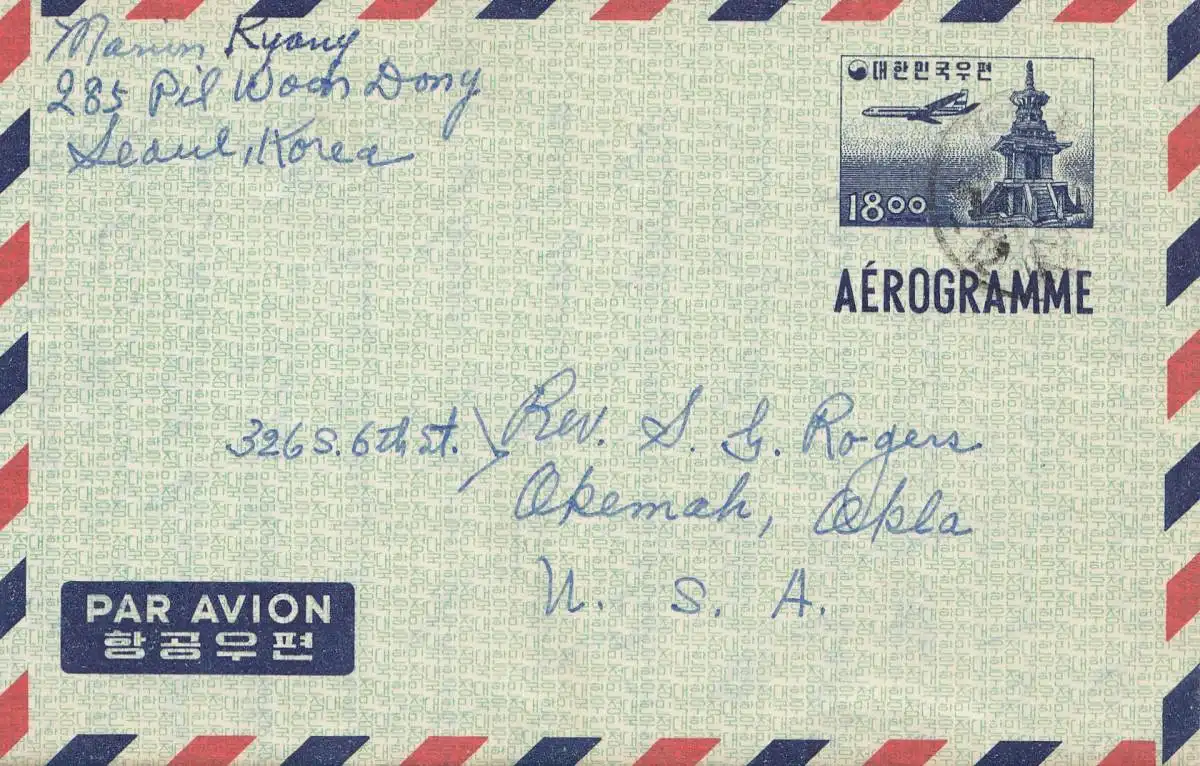 Ryang
285 Pil Woon Dong
Seoul, Korea
대한민국우편
18.00
AÉROGRAMME
326 S. 6th St.
Rev. S. G. Rogers
Okemah, Okla
U. S. A.
PAR AVION
항공우편